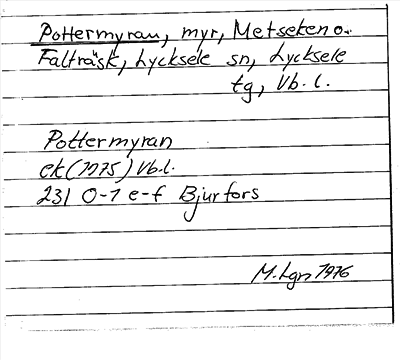 Pottermyran, myr, Metseken o.
Falträsk, Lycksele sn, Lycksele
tg, Vb. l.
Pottermyran
ek (1975) Vb.l.
231 0-1 e-f Bjurfors
M. Lgn 1976